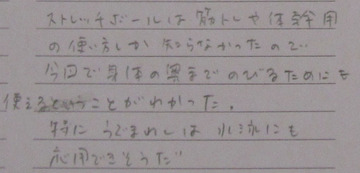 ストレッチポールは筋トレや体幹用
の使い方しか知らなかったので
今回で身体の奥までのびるためにも
使えるということがわかった。
特にうでまわしは水泳にも
応用できそうだ